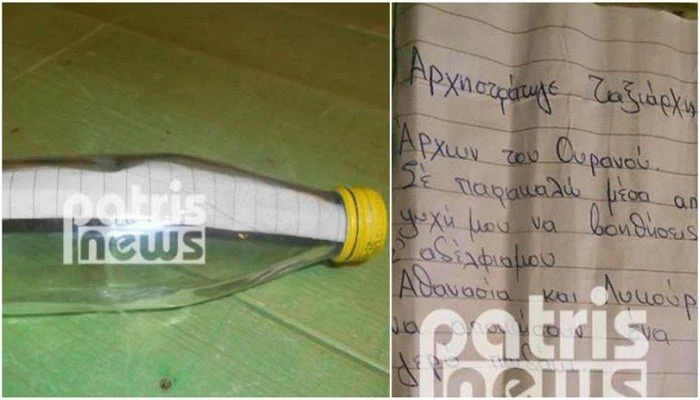 patris
news
Αρχηστράτηγε Ταξιάρχη
Άρχων του Ουρανού.
Σε παρακαλώ μέσα απ
ψυχή μου να βοηθήσεις
αδέλφια μου
Αθανασία και Λυκούρ
να αποχτήσουν ένα
γερό παιδί.
patris
news